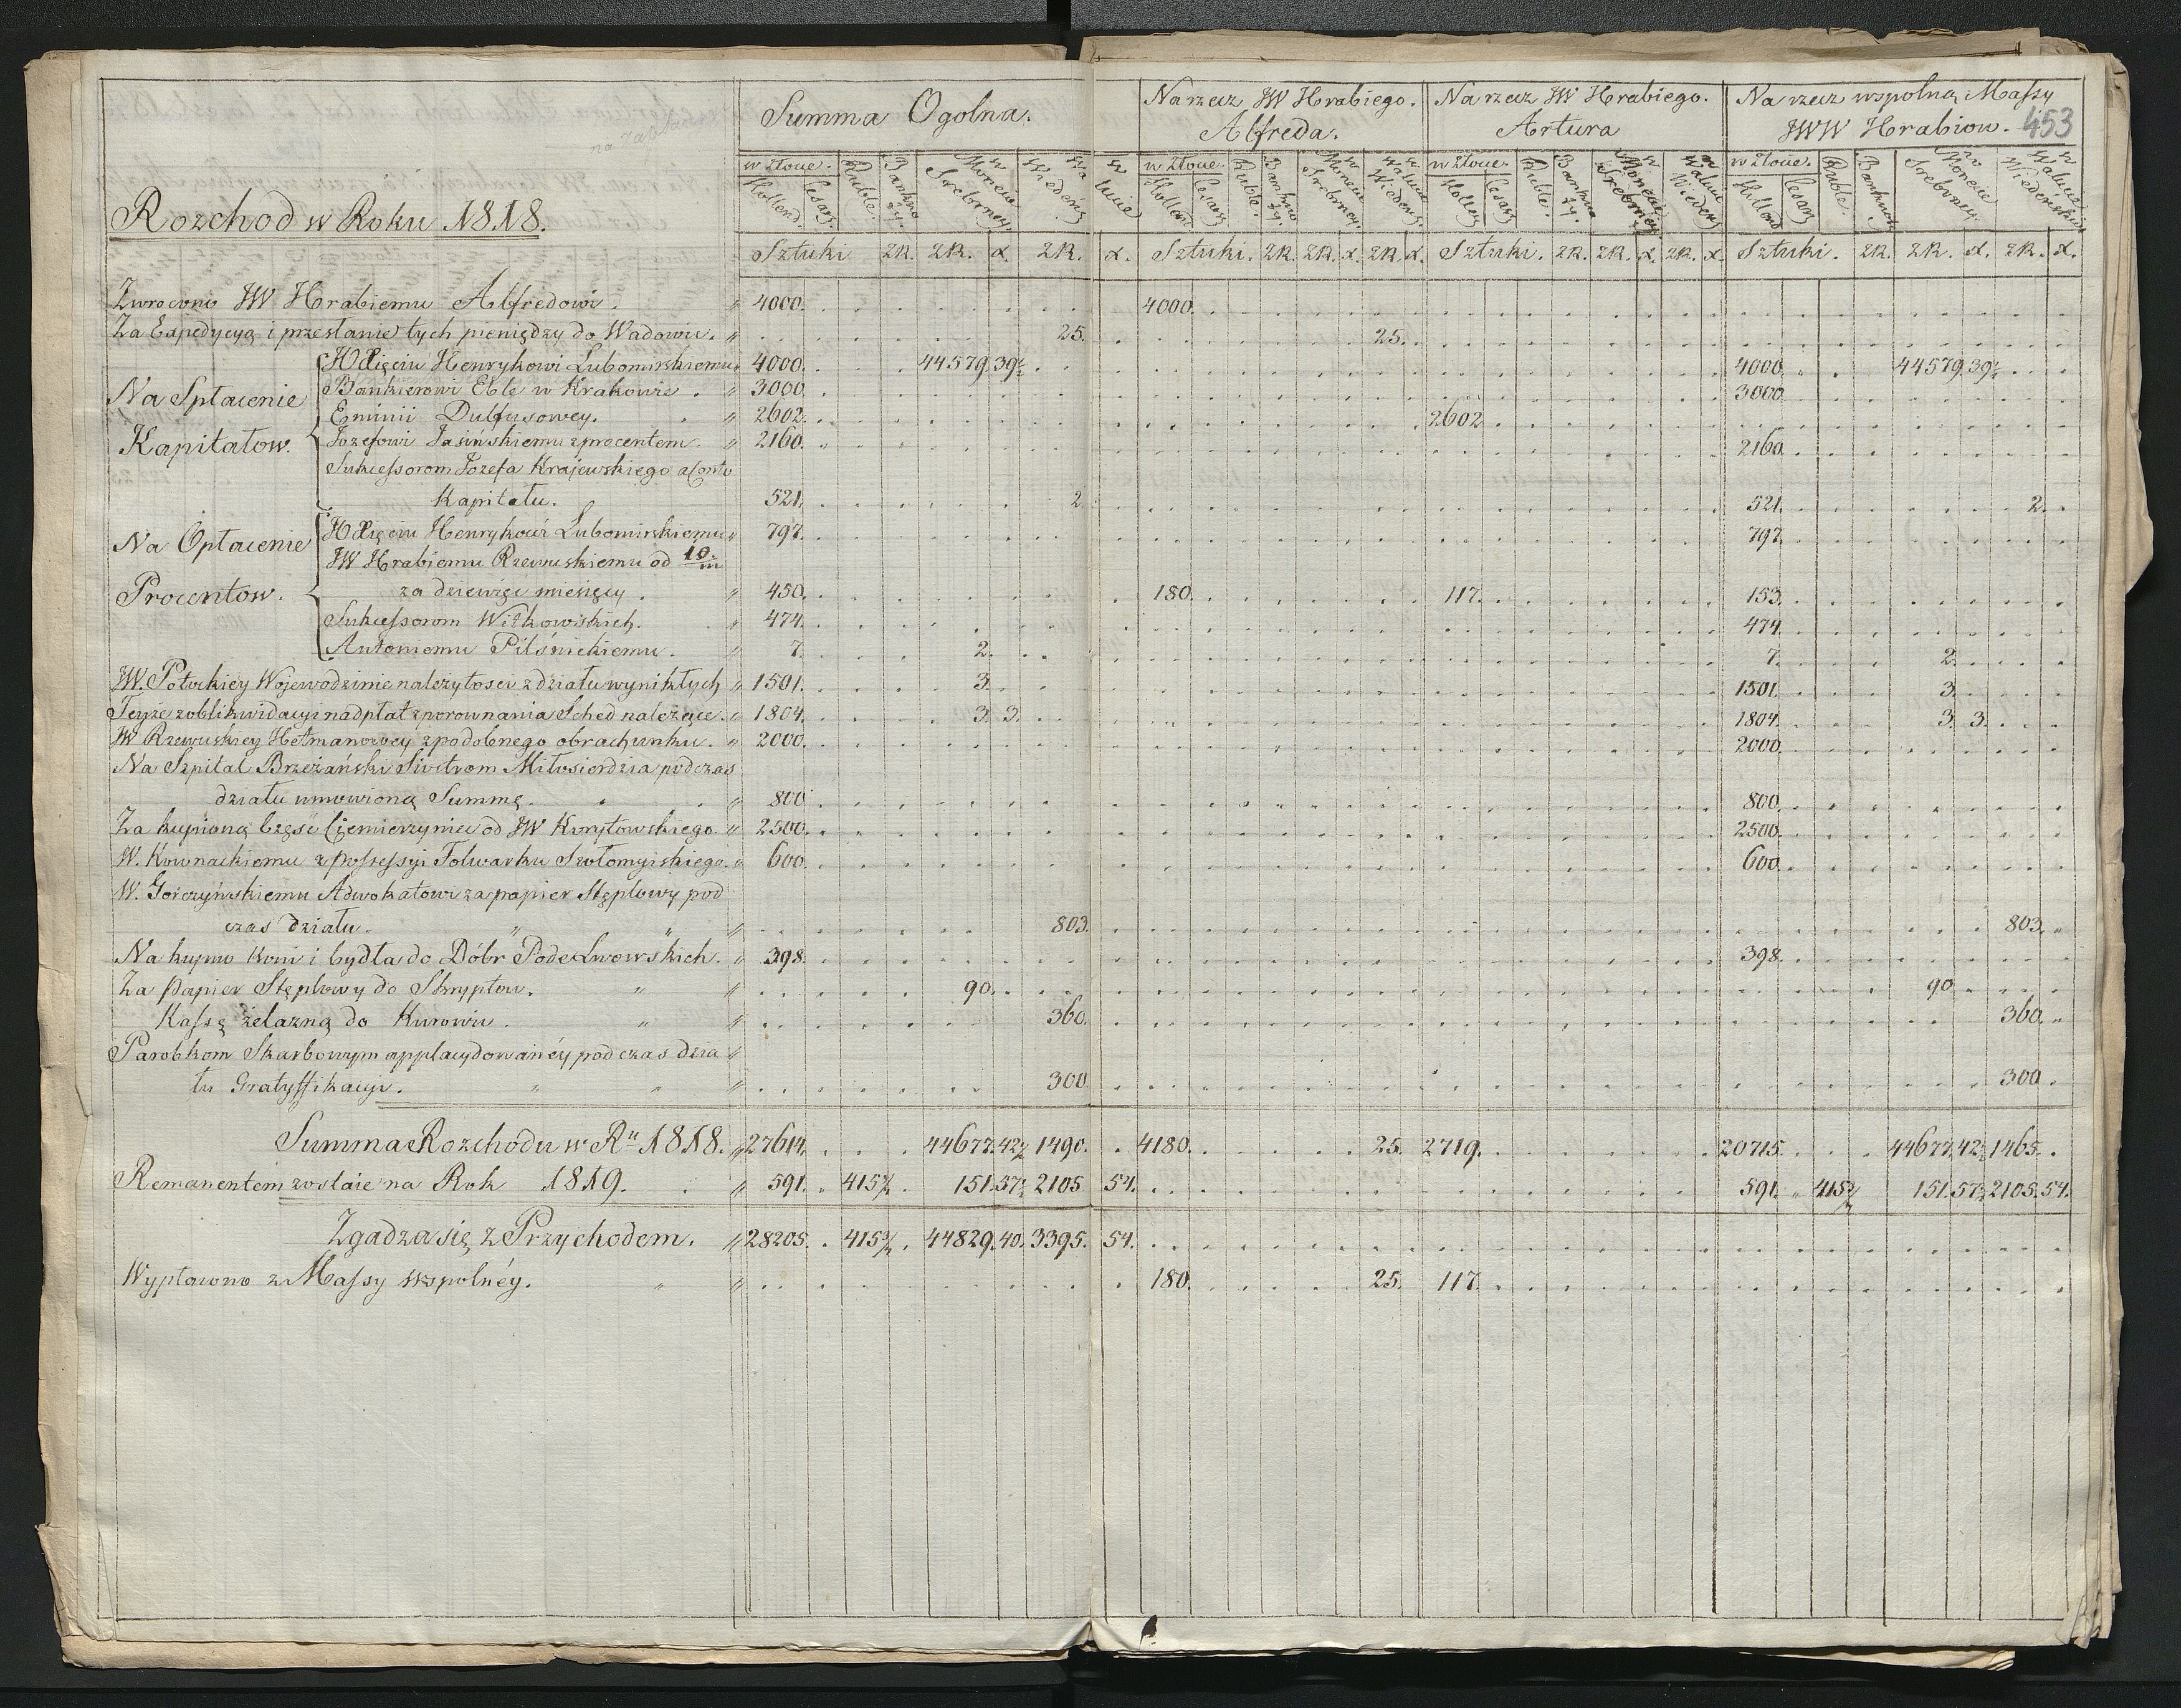 Summa Ogolna.
Na rzecz JW Hrabiego. Alfreda.
Na rzecz JW Hrabiego. Artura
Na rzecz wspolną Massy JWW Hrabiow. 453
w złocie. Holland Cesarz Ruble. w Monecie Srebrney.
w złocie. Holland Cesarz Ruble. w Monecie Srebrney. w Walucie Wiedeńs
w złocie. Cesarz Ruble. w Monecie Srebrney w Walucie Wiedeńs
w złocie. Holland Cesarz Ruble. w Monecie Srebrney. w Walucie Wiedeńskiey
Rozchod w Roku 1818.
Sztuki ZR. ZR. x. ZR. x. Sztuki. ZR. ZR. x. ZR. x. Sztuki. ZR. ZR. x. ZR. x. Sztuki. ZR. ZR. x. ZR. x.
Zwrocono JW Hrabiemu Alfredowi. " 4000. 4000.
Za Expedycyą i przesłanie tych pieniędzy do Wadowic. " 25. 25.
Na Spłacenie Kapitałow.
Henrykowi Lubomirskiemu 4000. 44579. 39½ 4000. 44579. 39½
Bankierowi Eble w Krakowie. " 3000. 3000.
Eminii Dulfusowey. " 2602. 2602.
Jozefowi Jasińskiemu z procentem. " 2160. 2160.
Sukcessorom Jozefa Krajewskiego a Conto
Kapitału. 521. 2. 521. 2.
Na Opłacenie Procentow.
Henrykowi Lubomirskiemu " 797. 797.
JW Hrabiemu Rzewuskiemu od 10/m
za dziewięć miesięcy. " 450. 180. 117. 153.
Sukcessorom Witkowskich. " 474. 474.
Antoniemu Pilśnickiemu. " 7. 2. 7. 2.
JW. Potockiey Wojewodzinie należytości z działu wynikłych " 1501. 3. 1501. 3.
Teyże z oblikwidacyi nadpłat z porownania Sched należące. " 1804. 3. 3. 1804. 3. 3.
JW Rzewuskiey Hetmanowey z podobnego obrachunku. " 2000. 2000.
Na Szpital Brzeżański Siostrom Miłosierdzia podczas
działu umowioną Summę. " 800 800.
Za kupioną Część Ciemierzyniec od JW Kurytowskiego. " 2500. 2500.
W. Kownackiemu z possessyi Folwarku Szołomyiskiego. " 600. 600.
W. Gorczyńskiemu Adwokatowi za papier Stęplowy pod
czas działu. " 803. 803. "
Na kupno koni i bydła do Dóbr Pode Lwowskich. " 398. 398.
Za Papier Stęplowy do Skryptow. " 90. 90
Kassę żelazną do Kurowic. " 360. 360. "
Parobkom Skarbowym applacydowanéy podczas dzia "
łu Gratyffikacyi. " 300. 300.
Summa Rozchodu w Rᵘ 1818. " 27614. 44677. 42½ 1490. 4180. 25. 2719. 20715. 44677. 42½ 1465.
Remanentem zostaie na Rok 1819. " 591. " 415½ 151. 57½ 2105 54. 591. " 415½ 151. 57½ 2105. 54.
Zgadza się z Przychodem. " 28205. 415½ 44829. 40. 3395. 54.
Wypłacono z Massy wspolnéy. " 180. 25. 117.